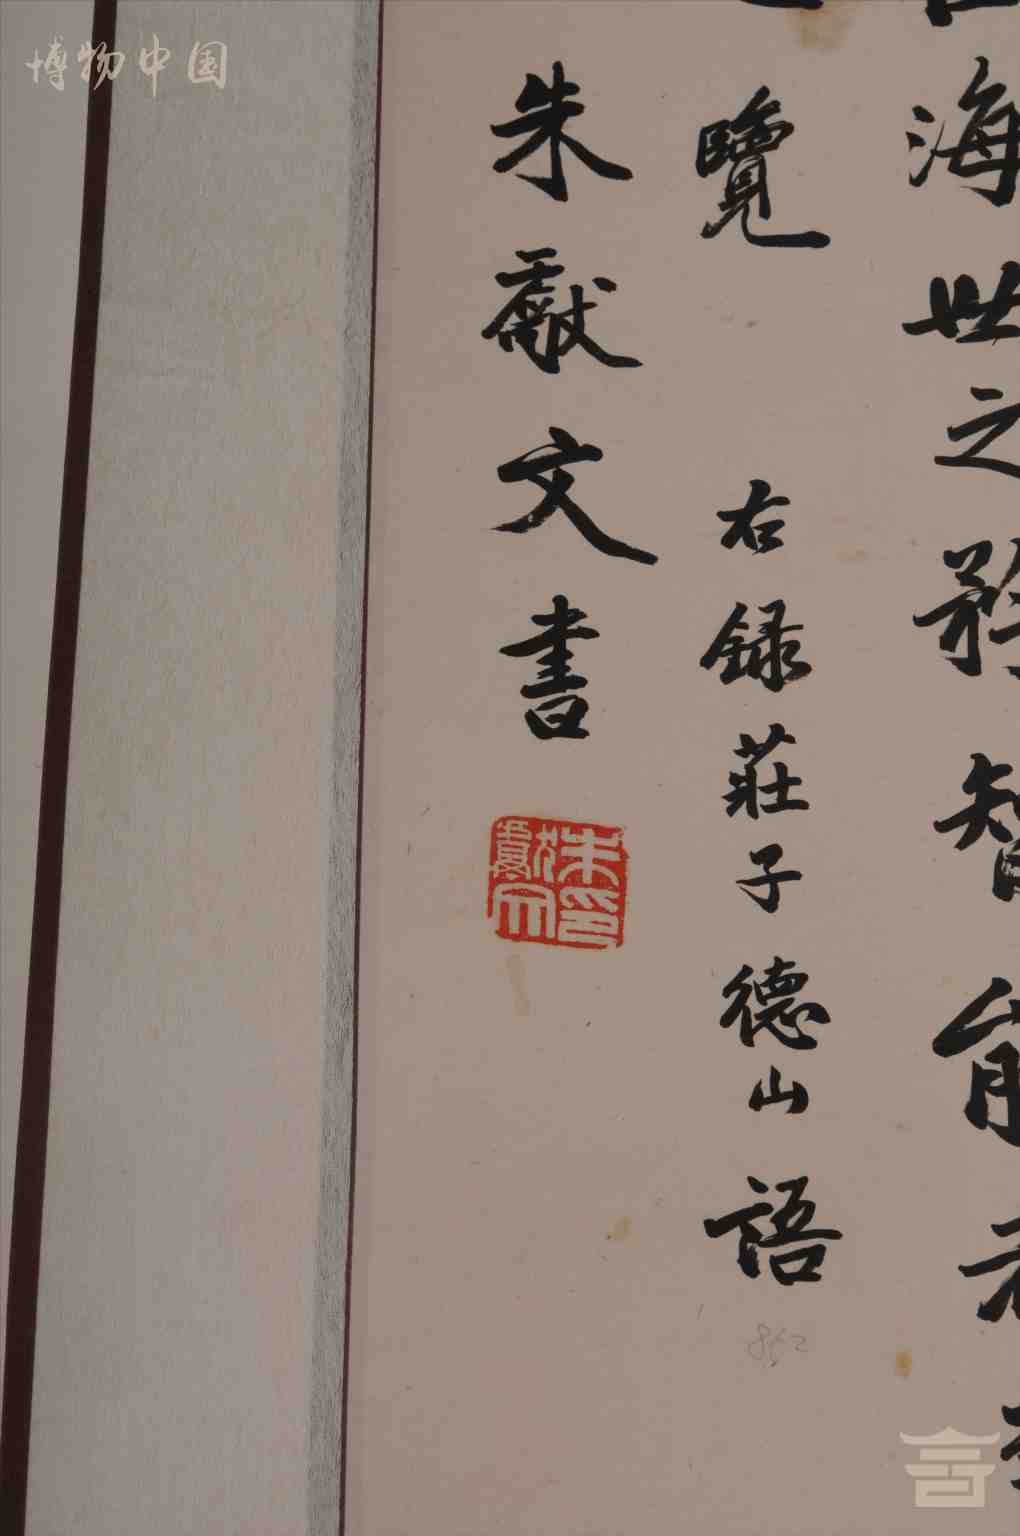 博物中国
海世之矜智能者
覽 右録莊子德山語
朱獻文書
朱獻文印
862